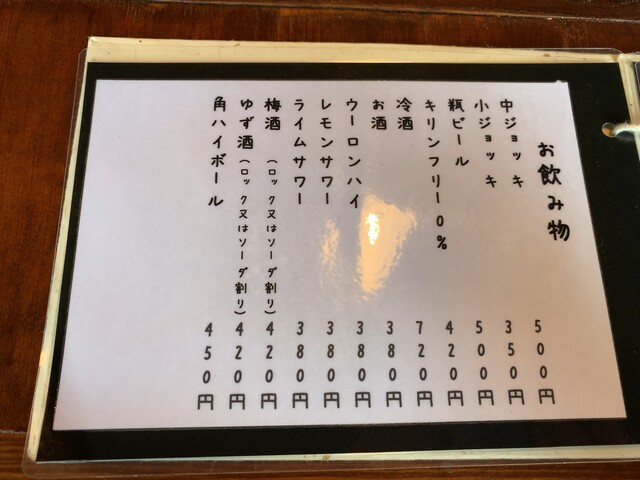 お飲み物
中ジョッキ 500円
小ジョッキ 350円
瓶ビール 500円
キリンフリー0% 420円
冷酒 720円
お酒 380円
ウーロンハイ 380円
レモンサワー 380円
ライムサワー 380円
梅酒(ロック又はソーダ割り) 420円
ゆず酒(ロック又はソーダ割り) 420円
角ハイボール 450円